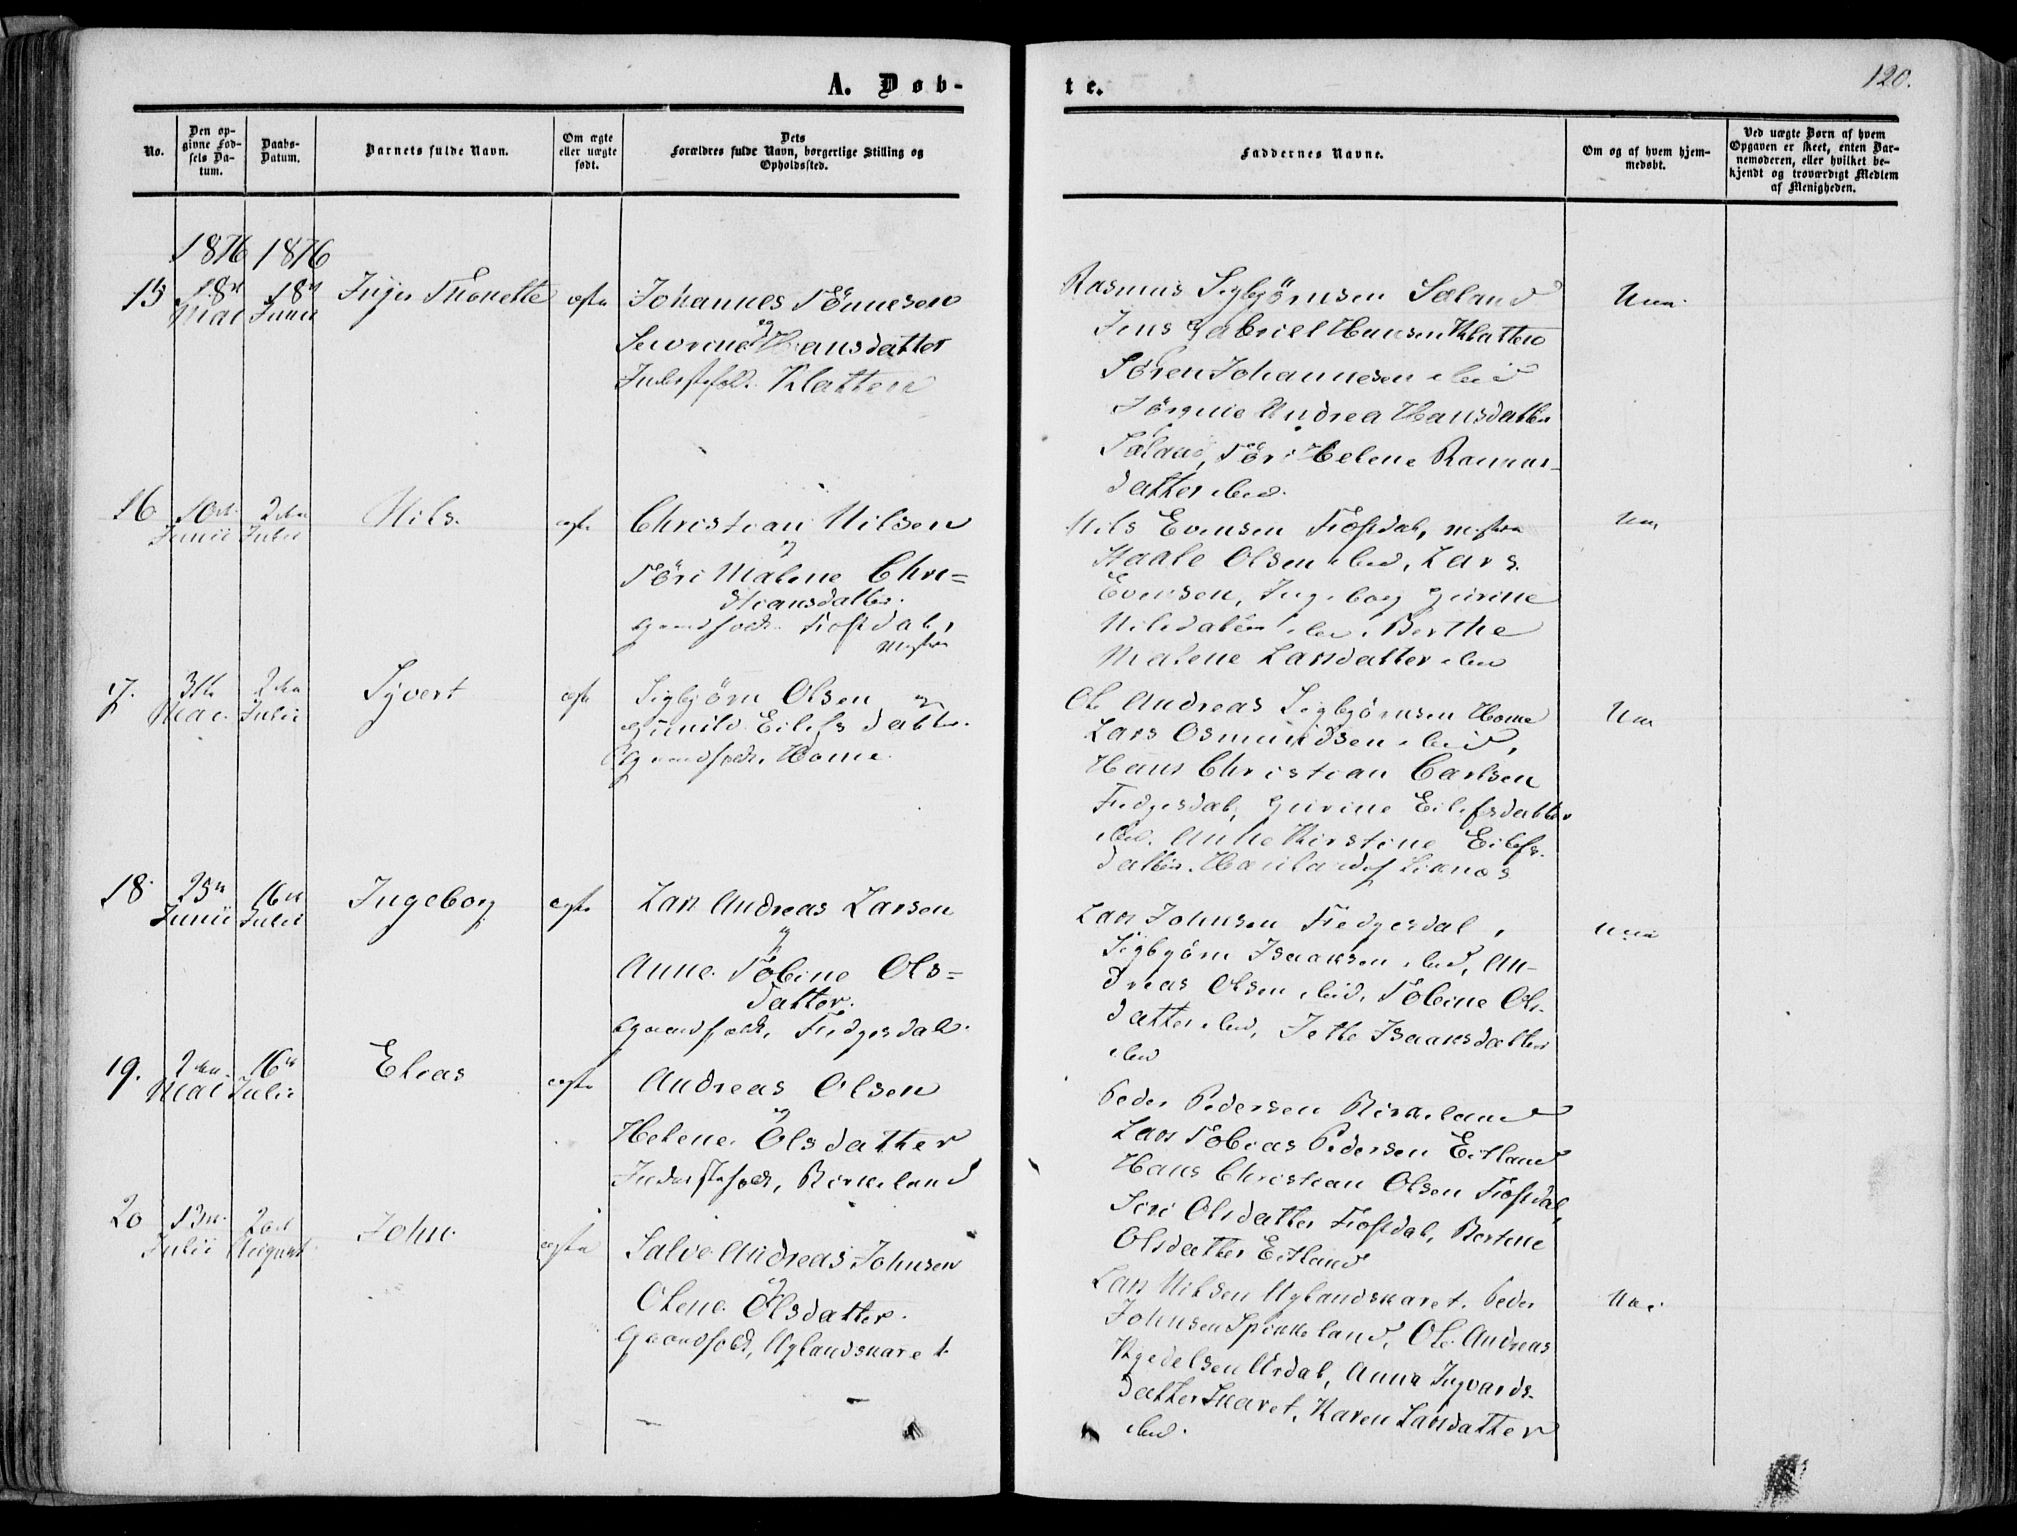 A. Døb-
te.
120.
No.
Den op-
givne Fød-
sels Da-
tum.
Daabs-
Datum.
Barnets fulde Navn.
Om ægte
eller uægte
født.
Dets
Forældres fulde Navn, borgerlige Stilling og
Opholdssted.
Faddernes Navne.
Om og af hvem hjem-
medøbt.
Ved uægte Børn af hvem
Opgaven er skeet, enten Bar-
nemoderen, eller hvilket be-
kjendt og troværdigt Medlem
af Menigheden.
1876 1876
15 18de 18de Inger Thonette ægte Johannes Tönnesen
Mai Junii
og
Severine Hansdatter
Inderstefolk. Klatten
Rasmus Sigbjörnsen Sæland
Jens Gabriel Hansen Klatten
Sören Johannesen ibid
Jörgine Andrea Hansdatter
Sæland, Töri Helene Rasmus-
datter ibid.
16 10de 2den Nils. ægte Christian Nilsen
Junii Julii
og
Töri Malene Chri-
stiansdatter.
Gaardfolk. Fiofsdal,
Nils Evensen Fiofsdal,
Haale Olsen ibid, Lars
Evensen, Ingeborg Gurine
Nilsdatter ibid. Berthe
Malene Larsdatter ibid
17. 31te 2den Syvert ægte Sigbjörn Olsen og
Mai. Julii
Gunild Eilefsdatter.
Gaardfolk. Home.
Ole Andreas Sigbjörnsen Home
Lars Osmundsen ibid,
Hans Christian Carlsen
Fidgesdal, Gurine Eilefsdatter
ibid. Anne Kirstine Eilefs-
datter.
18. 25de 16de Ingeborg ægte Lars Andreas Larsen
Junii Julii
og
Anne Tobine Ols-
datter.
Gaardfolk, Fidgesdal.
Lars Johnsen Fidgesdal,
Sigbjörn Isaaksen ibid, An-
dreas Olsen ibid, Tobine Ols-
datter ibid, Jette Isaaksdatter
ibid
19. 2den 16de Elias ægte Andreas Olsen
Mai Julii
og
Helene Olsdatter
Inderstefolk, Birkeland
Peder Pedersen Birkeland
Lars Tobias Pedersen Eitland
Hans Christian Olsen Fiofsdal,
Siri Olsdatter Fiofsdal, Bertine
Olsdatter Eitland
20 13de 20de John. ægte Salve Andreas Johnsen
Julii August
og
Olene Olsdatter.
Gaardfolk, Nylandskaret
Lars Nilsen Nylandskaret. Peder
Johnsen Spikkeland, Ole Andreas
Kjedelsen Urdal, Anna Ingvards-
datter Skaret, Karen Larsdatter
ibid.